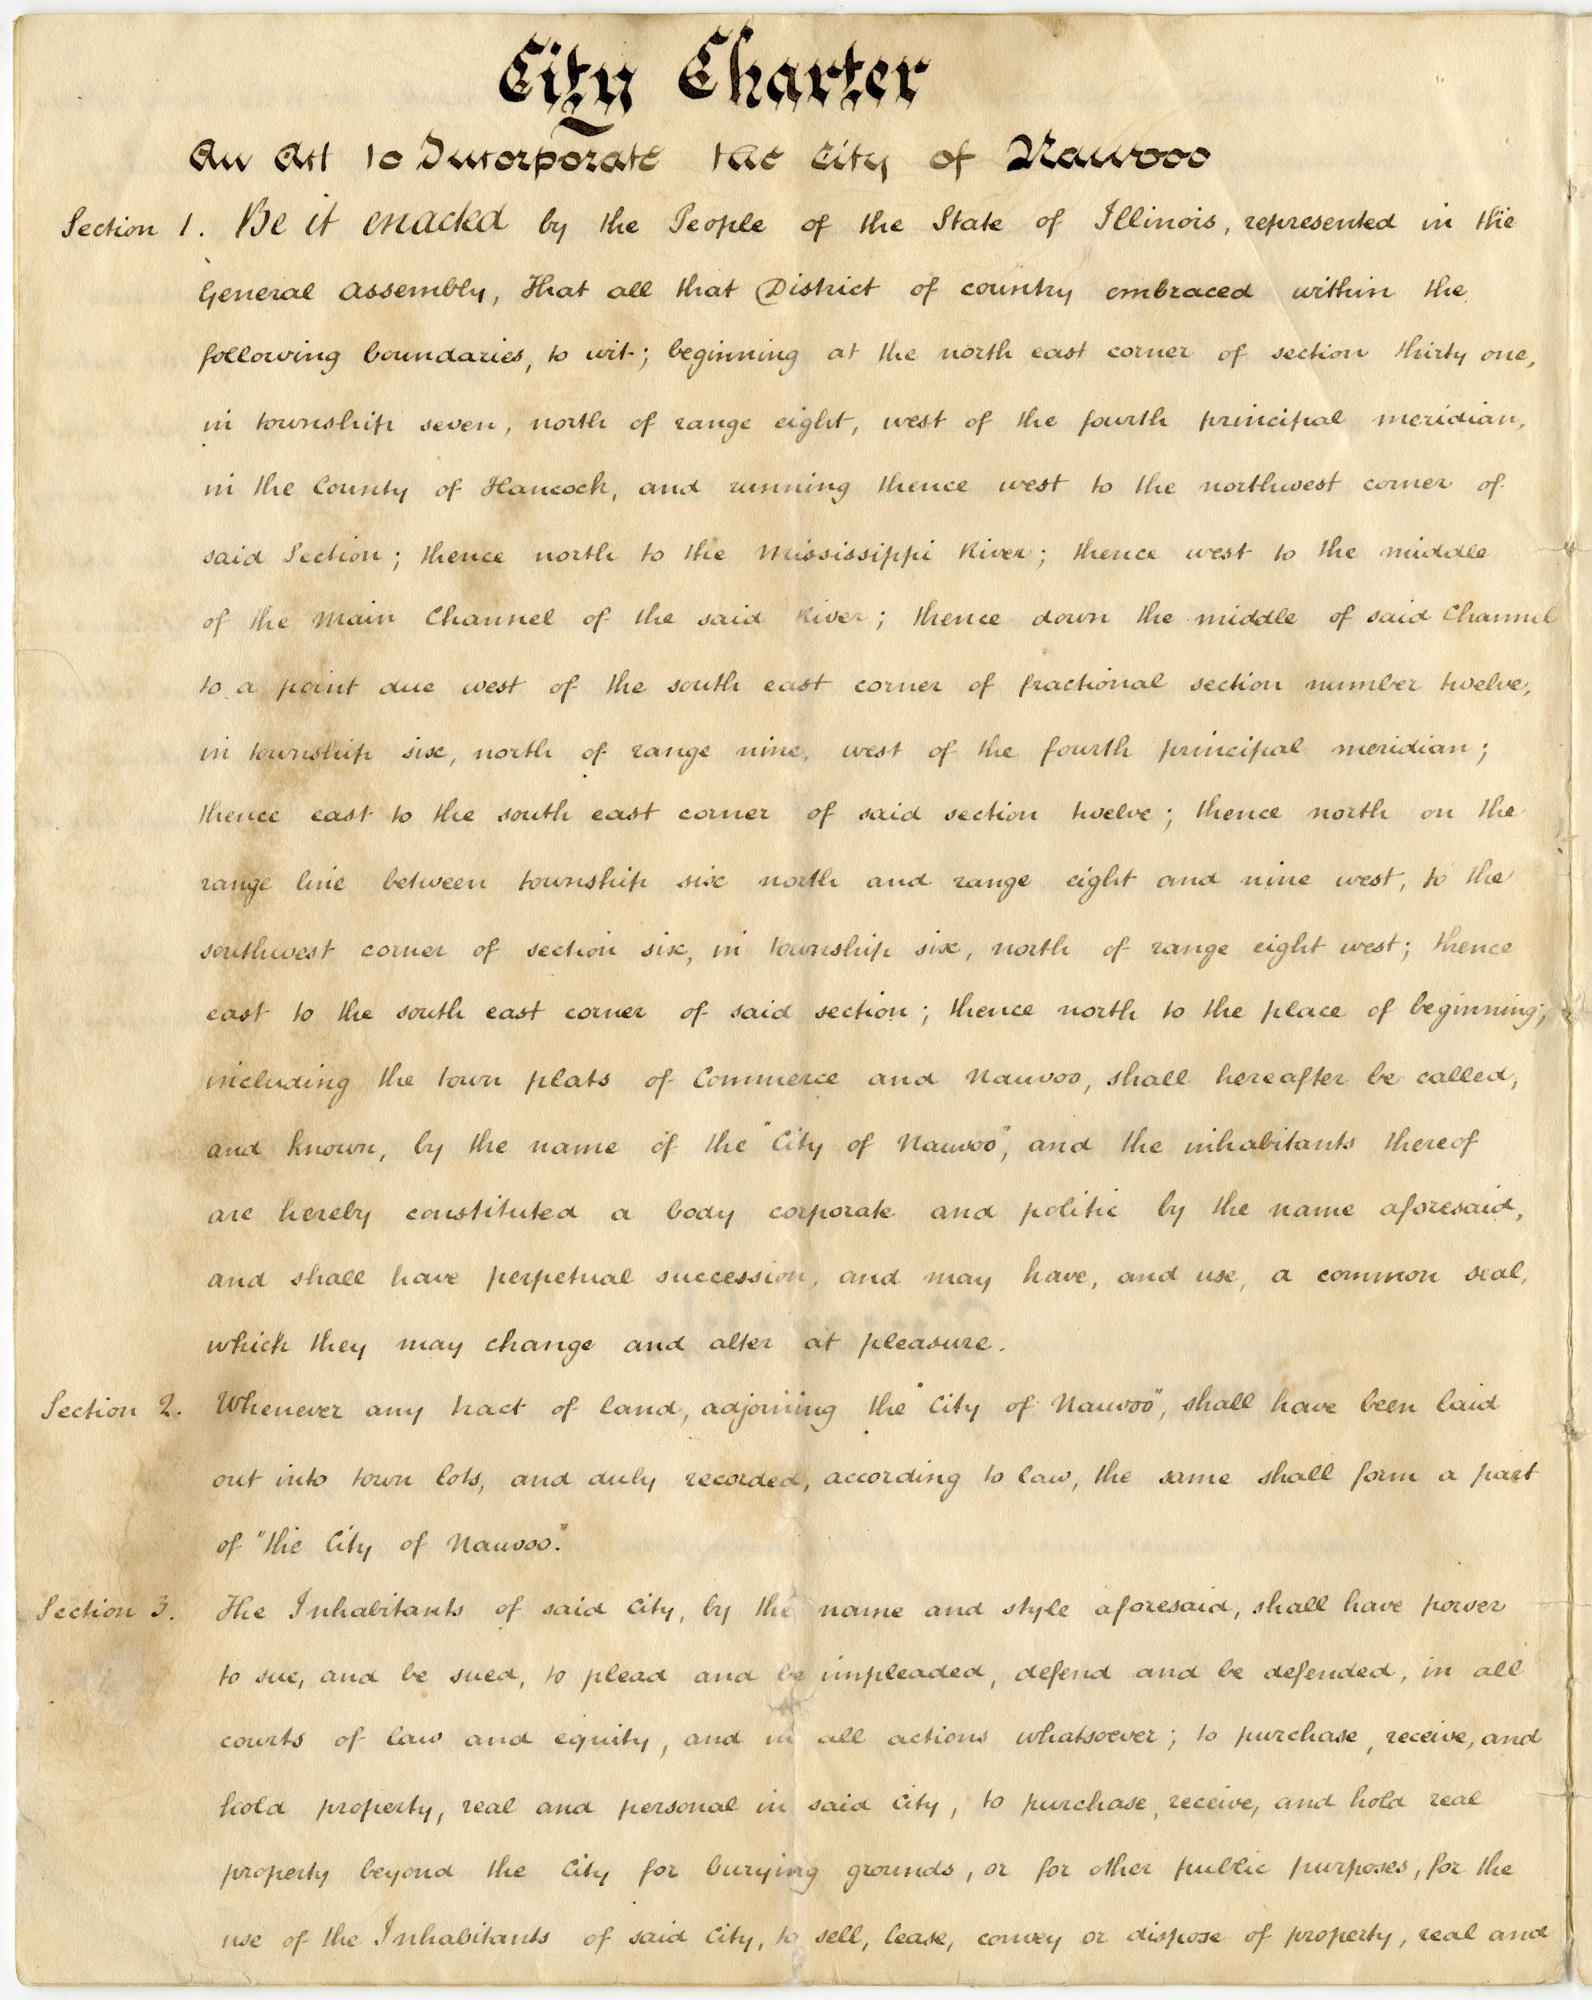 City Charter
An Act to Incorporate the City of Nauvoo
Section 1. Be it enacted by the People of the State of Illinois, represented in the
General Assembly, That all that District of country embraced within the
following boundaries, to wit; beginning at the north east corner of section thirty one,
in township seven, north of range eight, west of the fourth principal meridian,
in the County of Hancock, and running thence west to the northwest corner of
said Section; thence north to the Mississippi River; thence west to the middle
of the Main Channel of the said River; thence down the middle of said Channel
to a point due west of the south east corner of fractional section number twelve,
in township six, north of range nine, west of the fourth principal meridian;
thence east to the south east corner of said section twelve; thence north on the
range line between township six north and range eight and nine west, to the
southwest corner of section six, in township six, north of range eight west; thence
east to the south east corner of said section; thence north to the place of beginning;
including the town plats of Commerce and Nauvoo, shall hereafter be called,
and known, by the name of the "City of Nauvoo", and the inhabitants thereof
are hereby constituted a body corporate and politic by the name aforesaid,
and shall have perpetual succession, and may have, and use, a common seal,
which they may change and alter at pleasure.
Section 2. Whenever any tract of land, adjoining the "City of Nauvoo", shall have been laid
out into town lots, and duly recorded, according to law, the same shall form a part
of "the City of Nauvoo."
Section 3. The Inhabitants of said City, by the name and style aforesaid, shall have power
to sue, and be sued, to plead and be impleaded, defend and be defended, in all
courts of law and equity, and in all actions whatsoever; to purchase, receive, and
hold property, real and personal in said City, to purchase, receive, and hold real
property beyond the City for burying grounds, or for other public purposes, for the
use of the Inhabitants of said City, to sell, lease, convey or dispose of property, real and